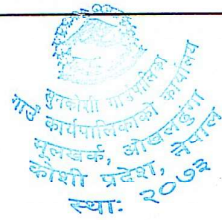 सुनकोशी गाउँपालिका
गाउँ कार्यपालिकाको कार्यालय
मूलखर्क, ओखलढुंगा
कोशी प्रदेश, नेपाल
स्था: २०७३